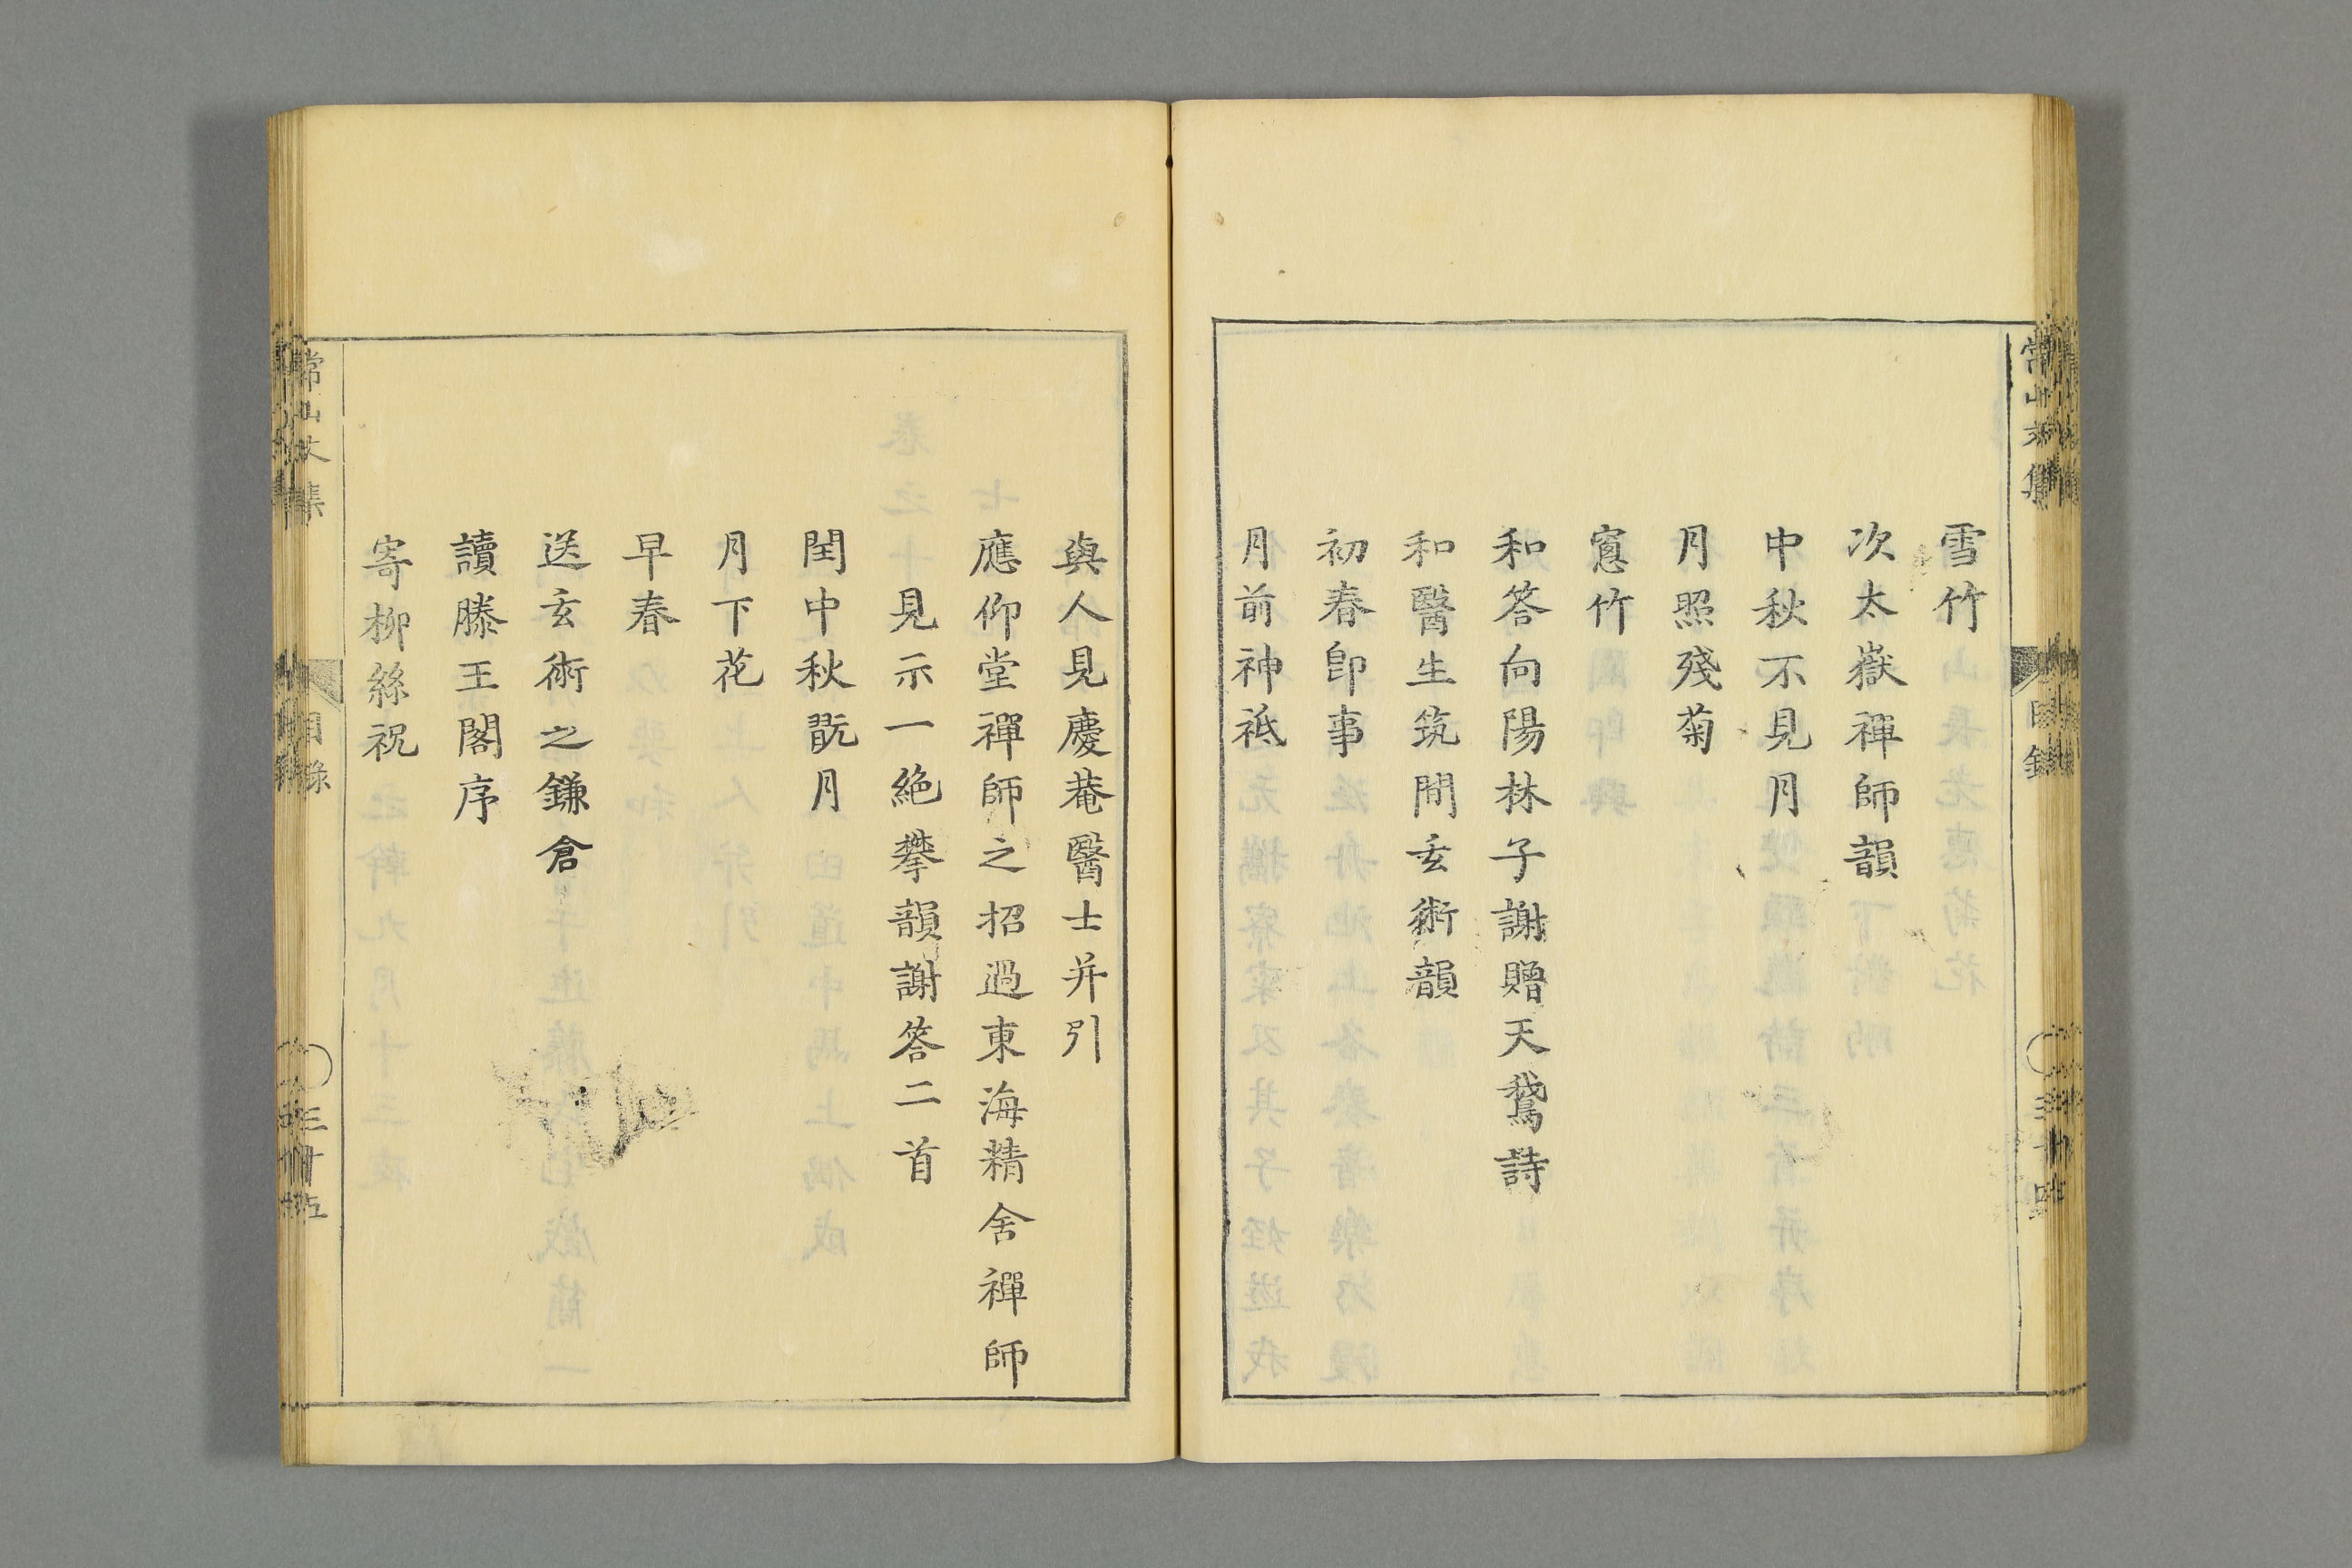 常山文集
目録
雪竹
次太嶽禪師韻
中秋不見月
月照殘菊
窻竹
和答向陽林子謝贈天鵞詩
和醫生筑間玄術韻
初春即事
月前神祗
與人見慶菴醫士并引
應仰堂禪師之招過東海精舍禪師
見示一絶攀韻謝答二首
閏中秋翫月
月下花
早春
送玄術之鎌倉
讀滕王閣序
寄柳絲祝
常山文集
目録
三十五